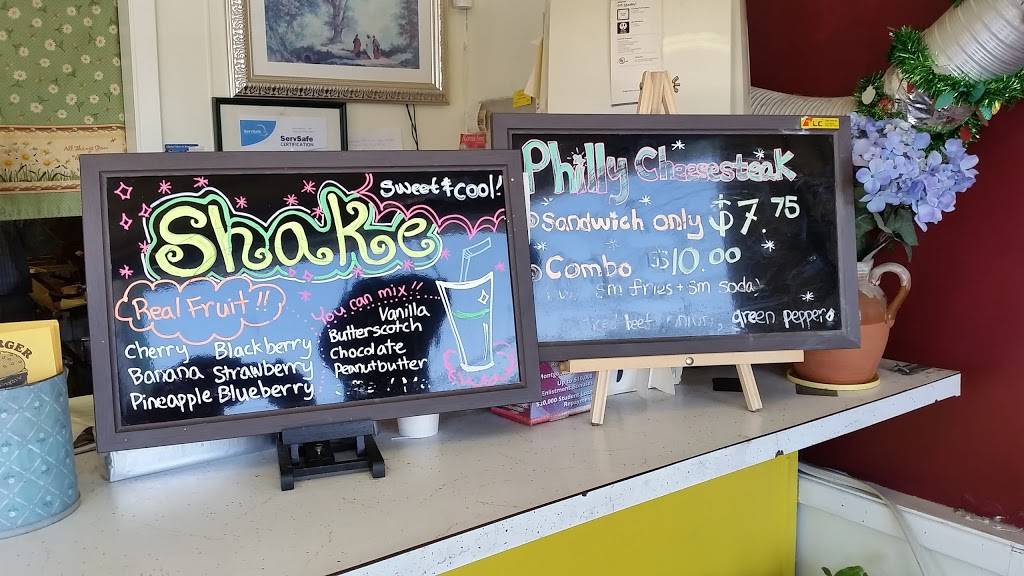 Sweet & Cool!
Shake
Real Fruit!!
Cherry Blackberry
Banana Strawberry
Pineapple Blueberry
You can mix!!
Vanilla
Butterscotch
Chocolate
Peanutbutter
Philly Cheesesteak
Sandwich only $7.75
Combo $10.00
sm fries + sm soda
green peppers
ServSafe
CERTIFICATION
LC